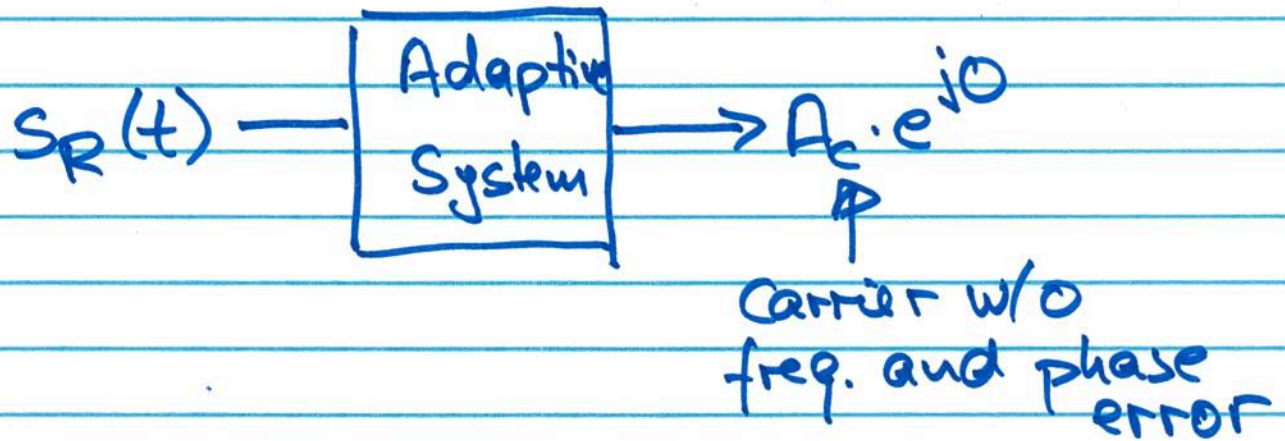 S_R(t) → Adaptive System → A_c · e^{j0}
Carrier w/o
freq. and phase
error